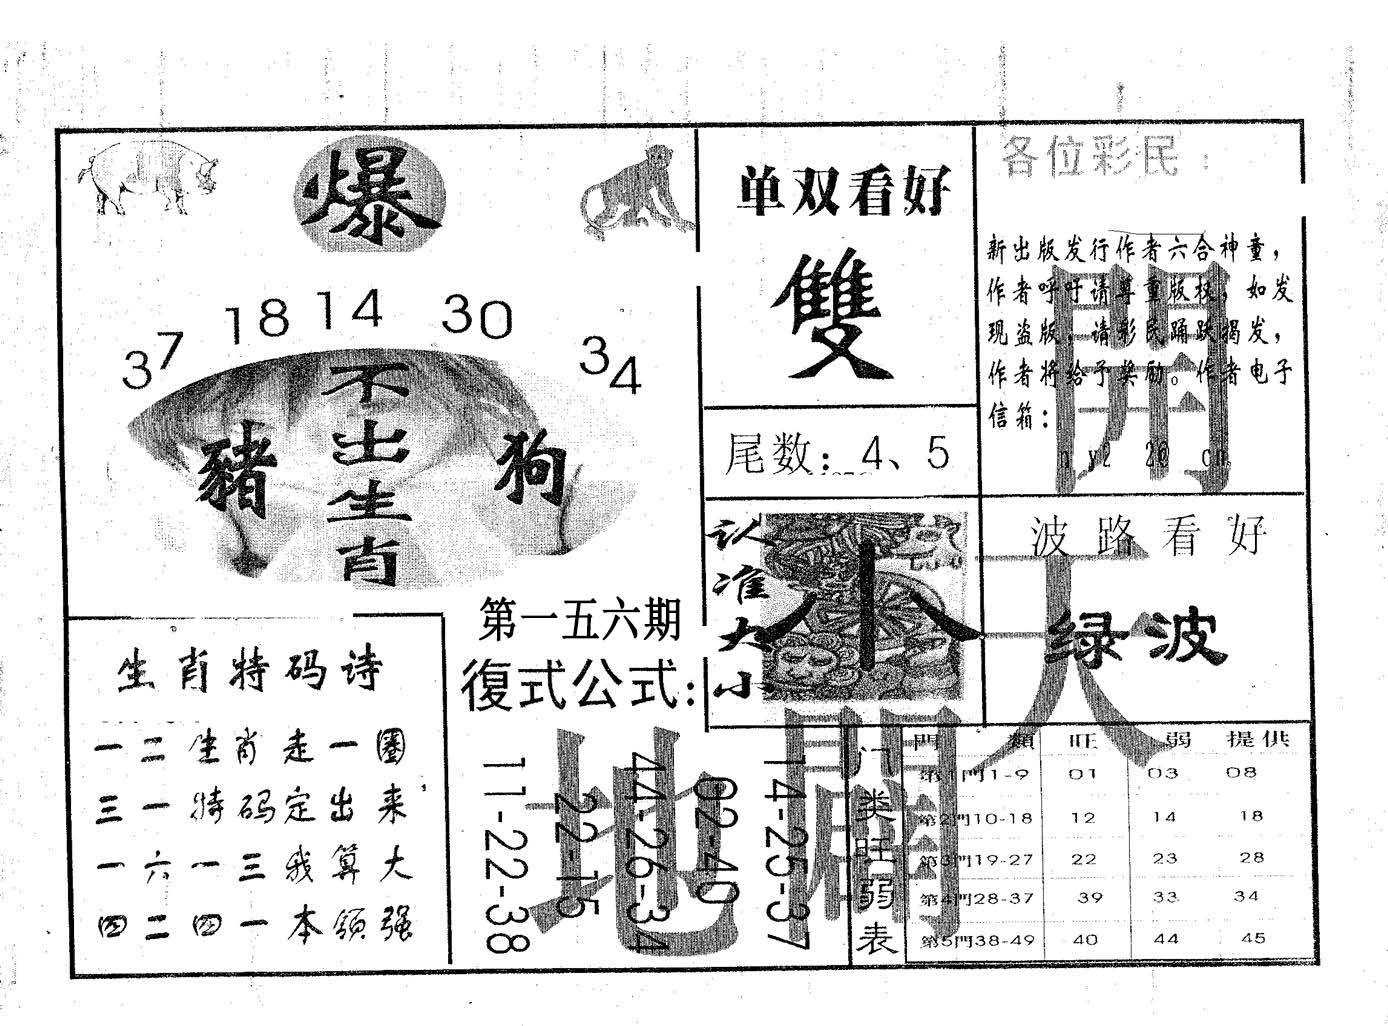 爆
37 18 14 30 34
不出生肖
豬
狗
单双看好
雙
尾数：4、5
各位彩民：
新出版发行作者六合神童，
作者呼吁请尊重版权，如发
现盗版，请彩民踊跃揭发，
作者将给予奖励。作者电子
信箱：
認准大小
小
波路看好
绿波
開天
闢地
第一五六期
復式公式：
11-22-38
22-15
44-26-34
02-40
14-25-37
生肖特码诗
一二生肖走一圈
三一特码定出来
一六一三我算大
四二四一本领强
门类旺弱表
門類 旺 弱 提供
第1門1-9 01 03 08
第2門10-18 12 14 18
第3門19-27 22 23 28
第4門28-37 39 33 34
第5門38-49 40 44 45